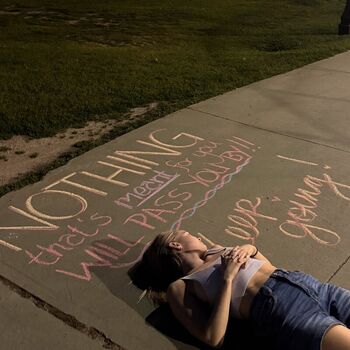 NOTHING
that's meant for you
WILL PASS YOU BY!!
ur young!